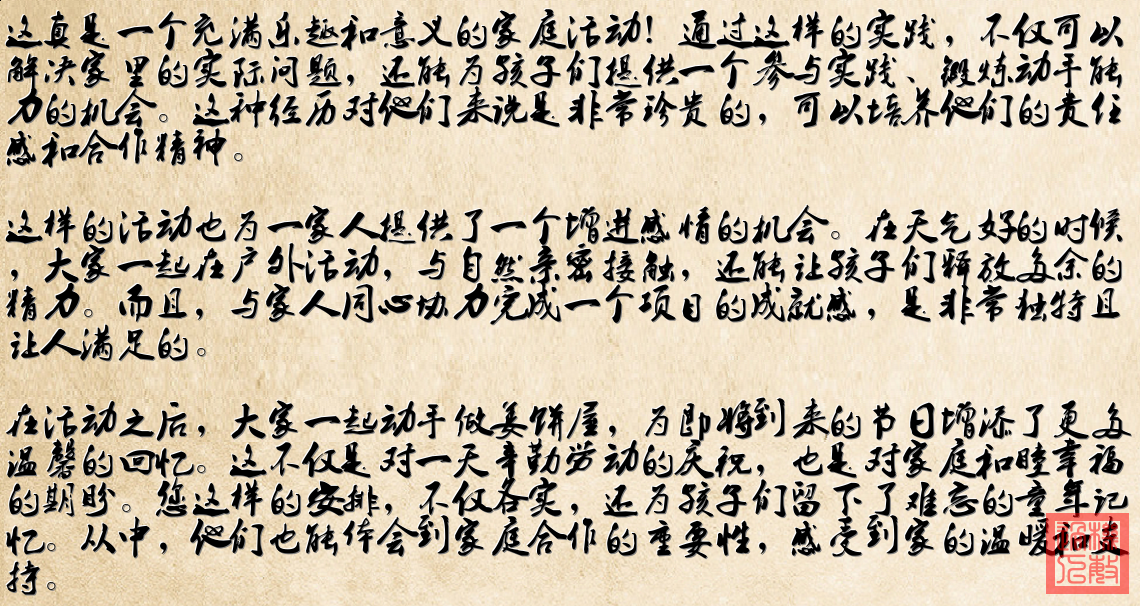 这真是一个充满乐趣和意义的家庭活动！通过这样的实践，不仅可以
解决家里的实际问题，还能为孩子们提供一个参与实践、锻炼动手能
力的机会。这种经历对他们来说是非常珍贵的，可以培养他们的责任
感和合作精神。
这样的活动也为一家人提供了一个增进感情的机会。在天气好的时候
，大家一起在户外活动，与自然亲密接触，还能让孩子们释放多余的
精力。而且，与家人同心协力完成一个项目的成就感，是非常独特且
让人满足的。
在活动之后，大家一起动手做姜饼屋，为即将到来的节日增添了更多
温馨的回忆。这不仅是对一天辛勤劳动的庆祝，也是对家庭和睦幸福
的期盼。您这样的安排，不仅务实，还为孩子们留下了难忘的童年记
忆。从中，他们也能体会到家庭合作的重要性，感受到家的温暖和支
持。